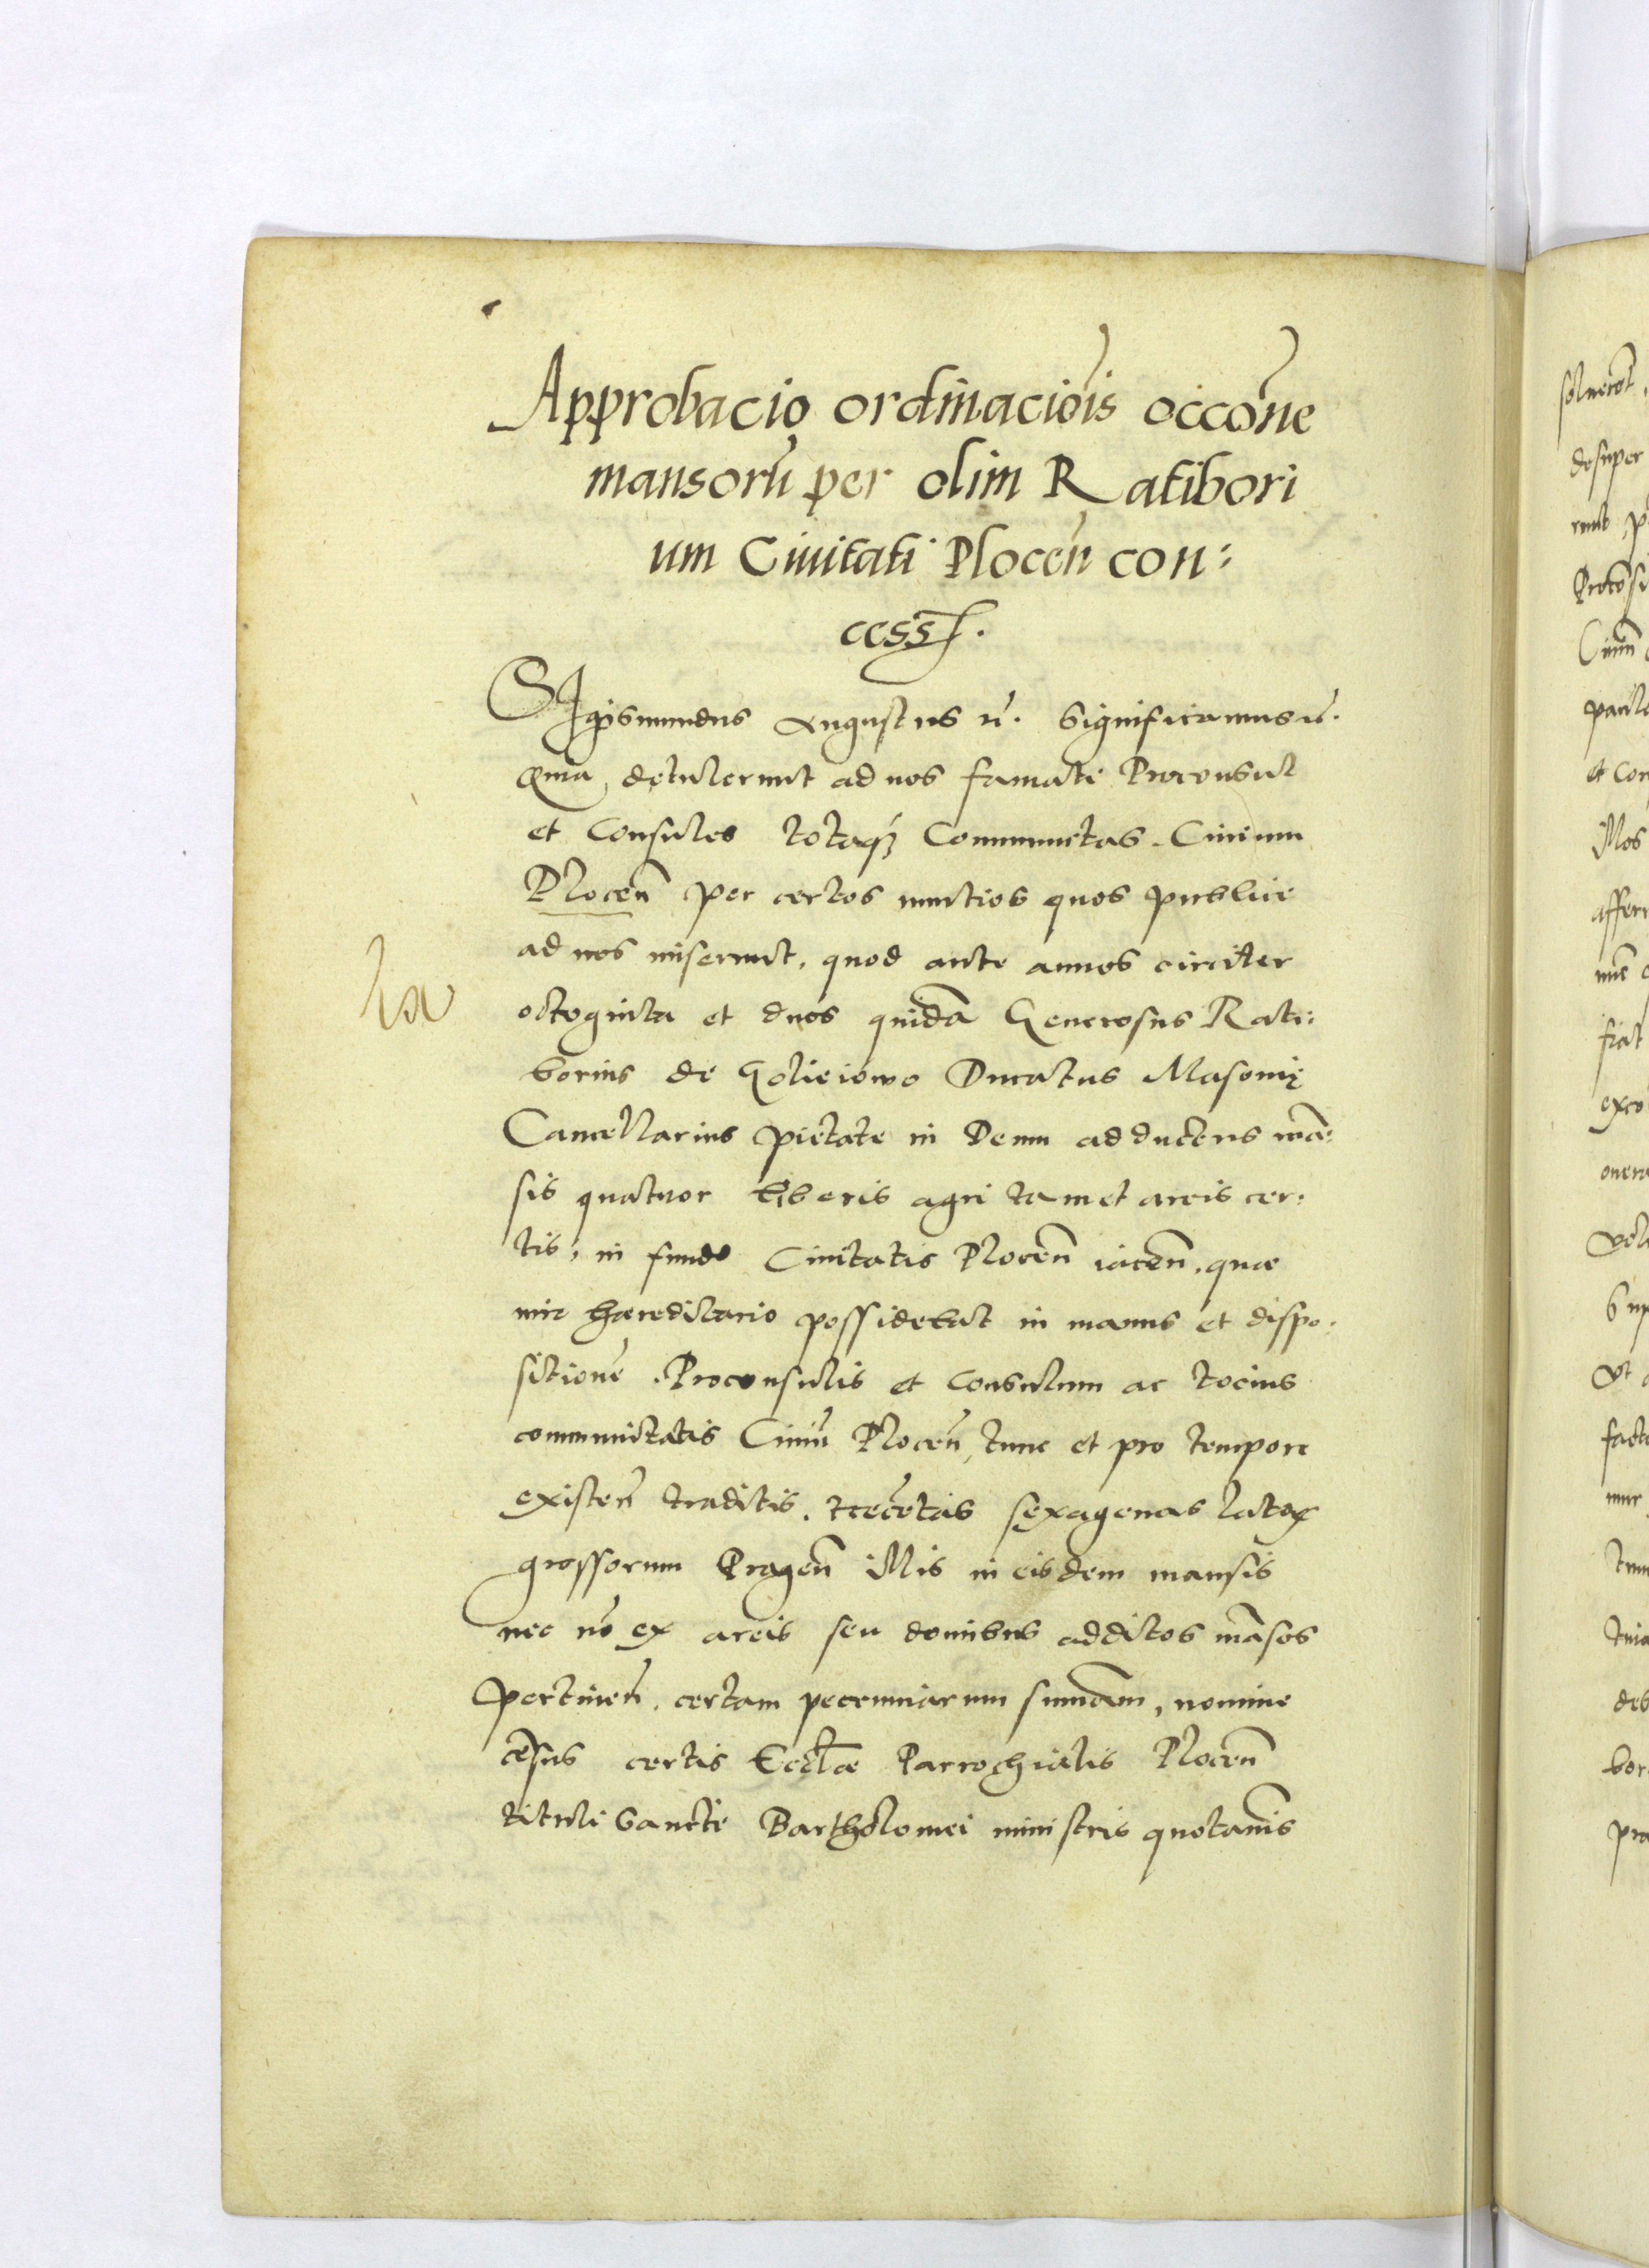 Approbacio ordinaciõis occõne
mansorũ per olim Ratibori
um Ciuitati Plocen̄ con:
cess.
SIgismundus Augustus r̃. Significamus r̃.
Quia detulerunt ad nos famati Proconsul
et Consules totaq3 Communitas Ciuium
Plocen̄ per certos nuntios quos publice
ad nos miserunt, quod ante annos circiter
octoginta et duos quidã Generosus Rati:
borius de Golieiowo Ducatus Masouię
Cancellarius pietate in Deum adductus mã:
sis quatuor liberis agri tam et areis cer:
tis, in fundo Ciuitatis Plocen̄ iacen̄, quæ
iure hæreditario possidebat in manus et dispo:
sitionẽ Proconsulis et Consulum ac tocius
communitatis Ciuiũ Plocen̄, tunc et pro tempore
existen̄ traditis, trecẽtas sexagenas latoꝝ
grossorum Pragen̄ illis in eisdem mansis
nec nõ ex areis seu domibus ad dictos mãsos
pertinen̄, certam pecuniarum summam, nomine
cẽsus certis Eccl̃æ Parrochialis Plocen̄
tituli Sancti Bartholomei ministris quotannis
soluerẽt,
desuper
runt, p
Ciuiũ
et con
illos
affer
fiat
exco
Vt
facta
deb
bor